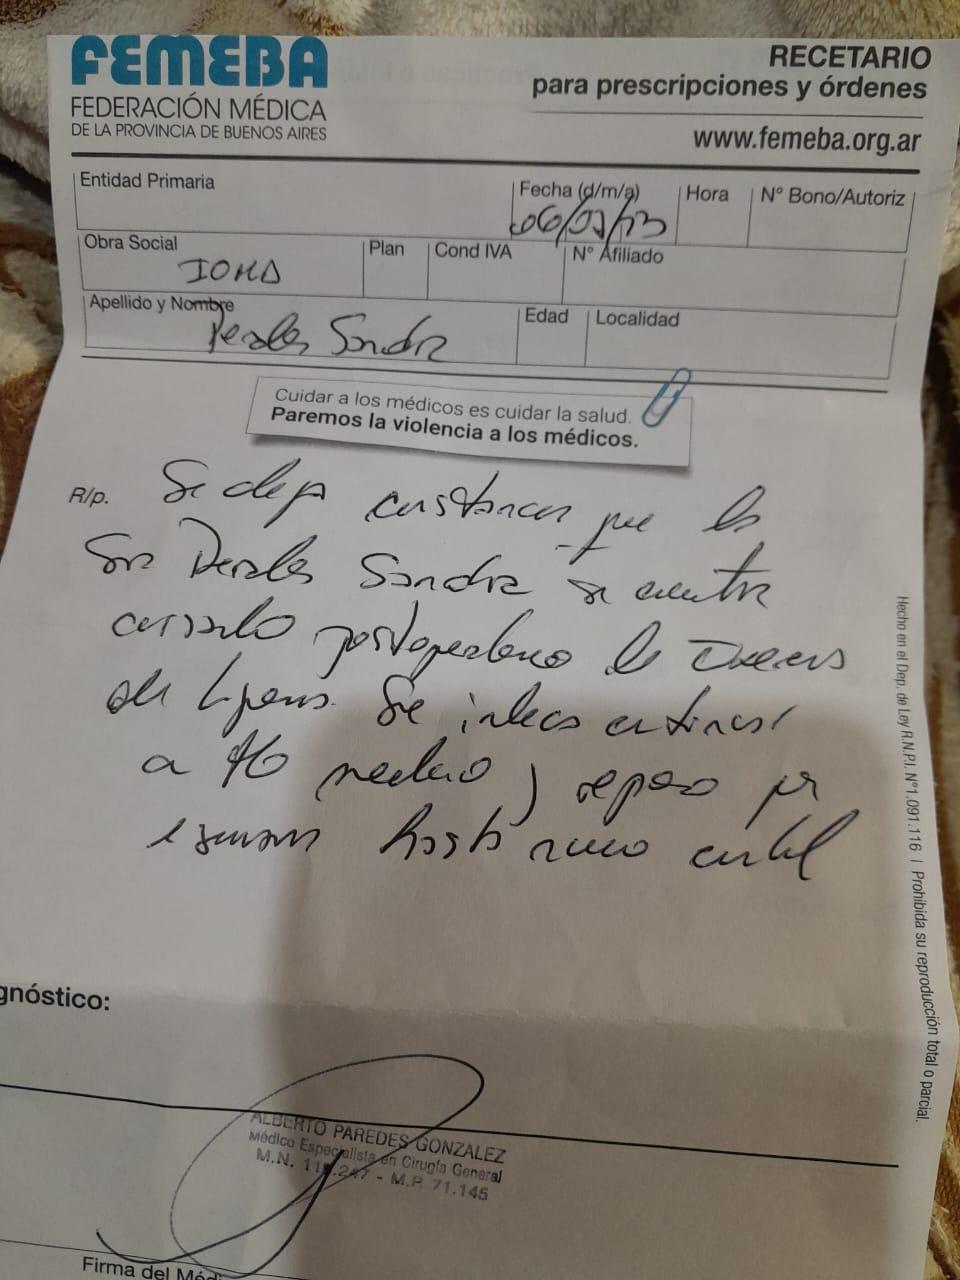 FEMEBA
FEDERACIÓN MÉDICA
DE LA PROVINCIA DE BUENOS AIRES
RECETARIO
para prescripciones y órdenes
www.femeba.org.ar
Entidad Primaria
Fecha (d/m/a)
Hora
N° Bono/Autoriz
Obra Social
IOMA
Plan
Cond IVA
N° Afiliado
Apellido y Nombre
Sandra
Edad
Localidad
Cuidar a los médicos es cuidar la salud.
Paremos la violencia a los médicos.
R/p. Se deja constancia que la
Sra Sandra se encuentra
cursando postoperatorio de
de Se indica continuar
reposo por
hasta nuevo control
gnóstico:
ALBERTO PAREDES GONZALEZ
Médico Especialista en Cirugía General
M.P. 71.145
Firma del
Hecho en el Dep. de Ley R.N.P.I. N°1.091.116 | Prohibida su reproducción total o parcial.